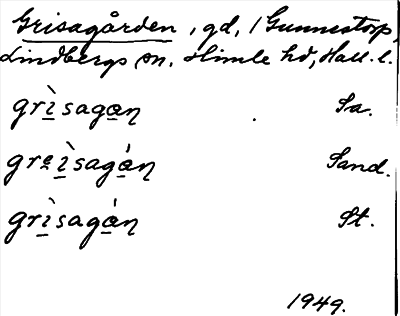 Grisagården, gd, i Gunnestorp,
Lindbergs sn, Himle hd, Hall. l.
grìsagan̥ Sa.
greìsagán̥ Sand.
grìsagán̥ St.
1949.